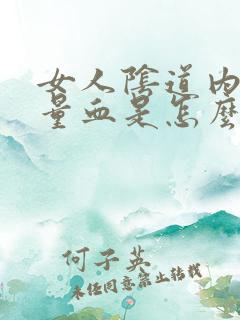 女人陰道内
量血是怎麽
何子英
未经同意禁止转载